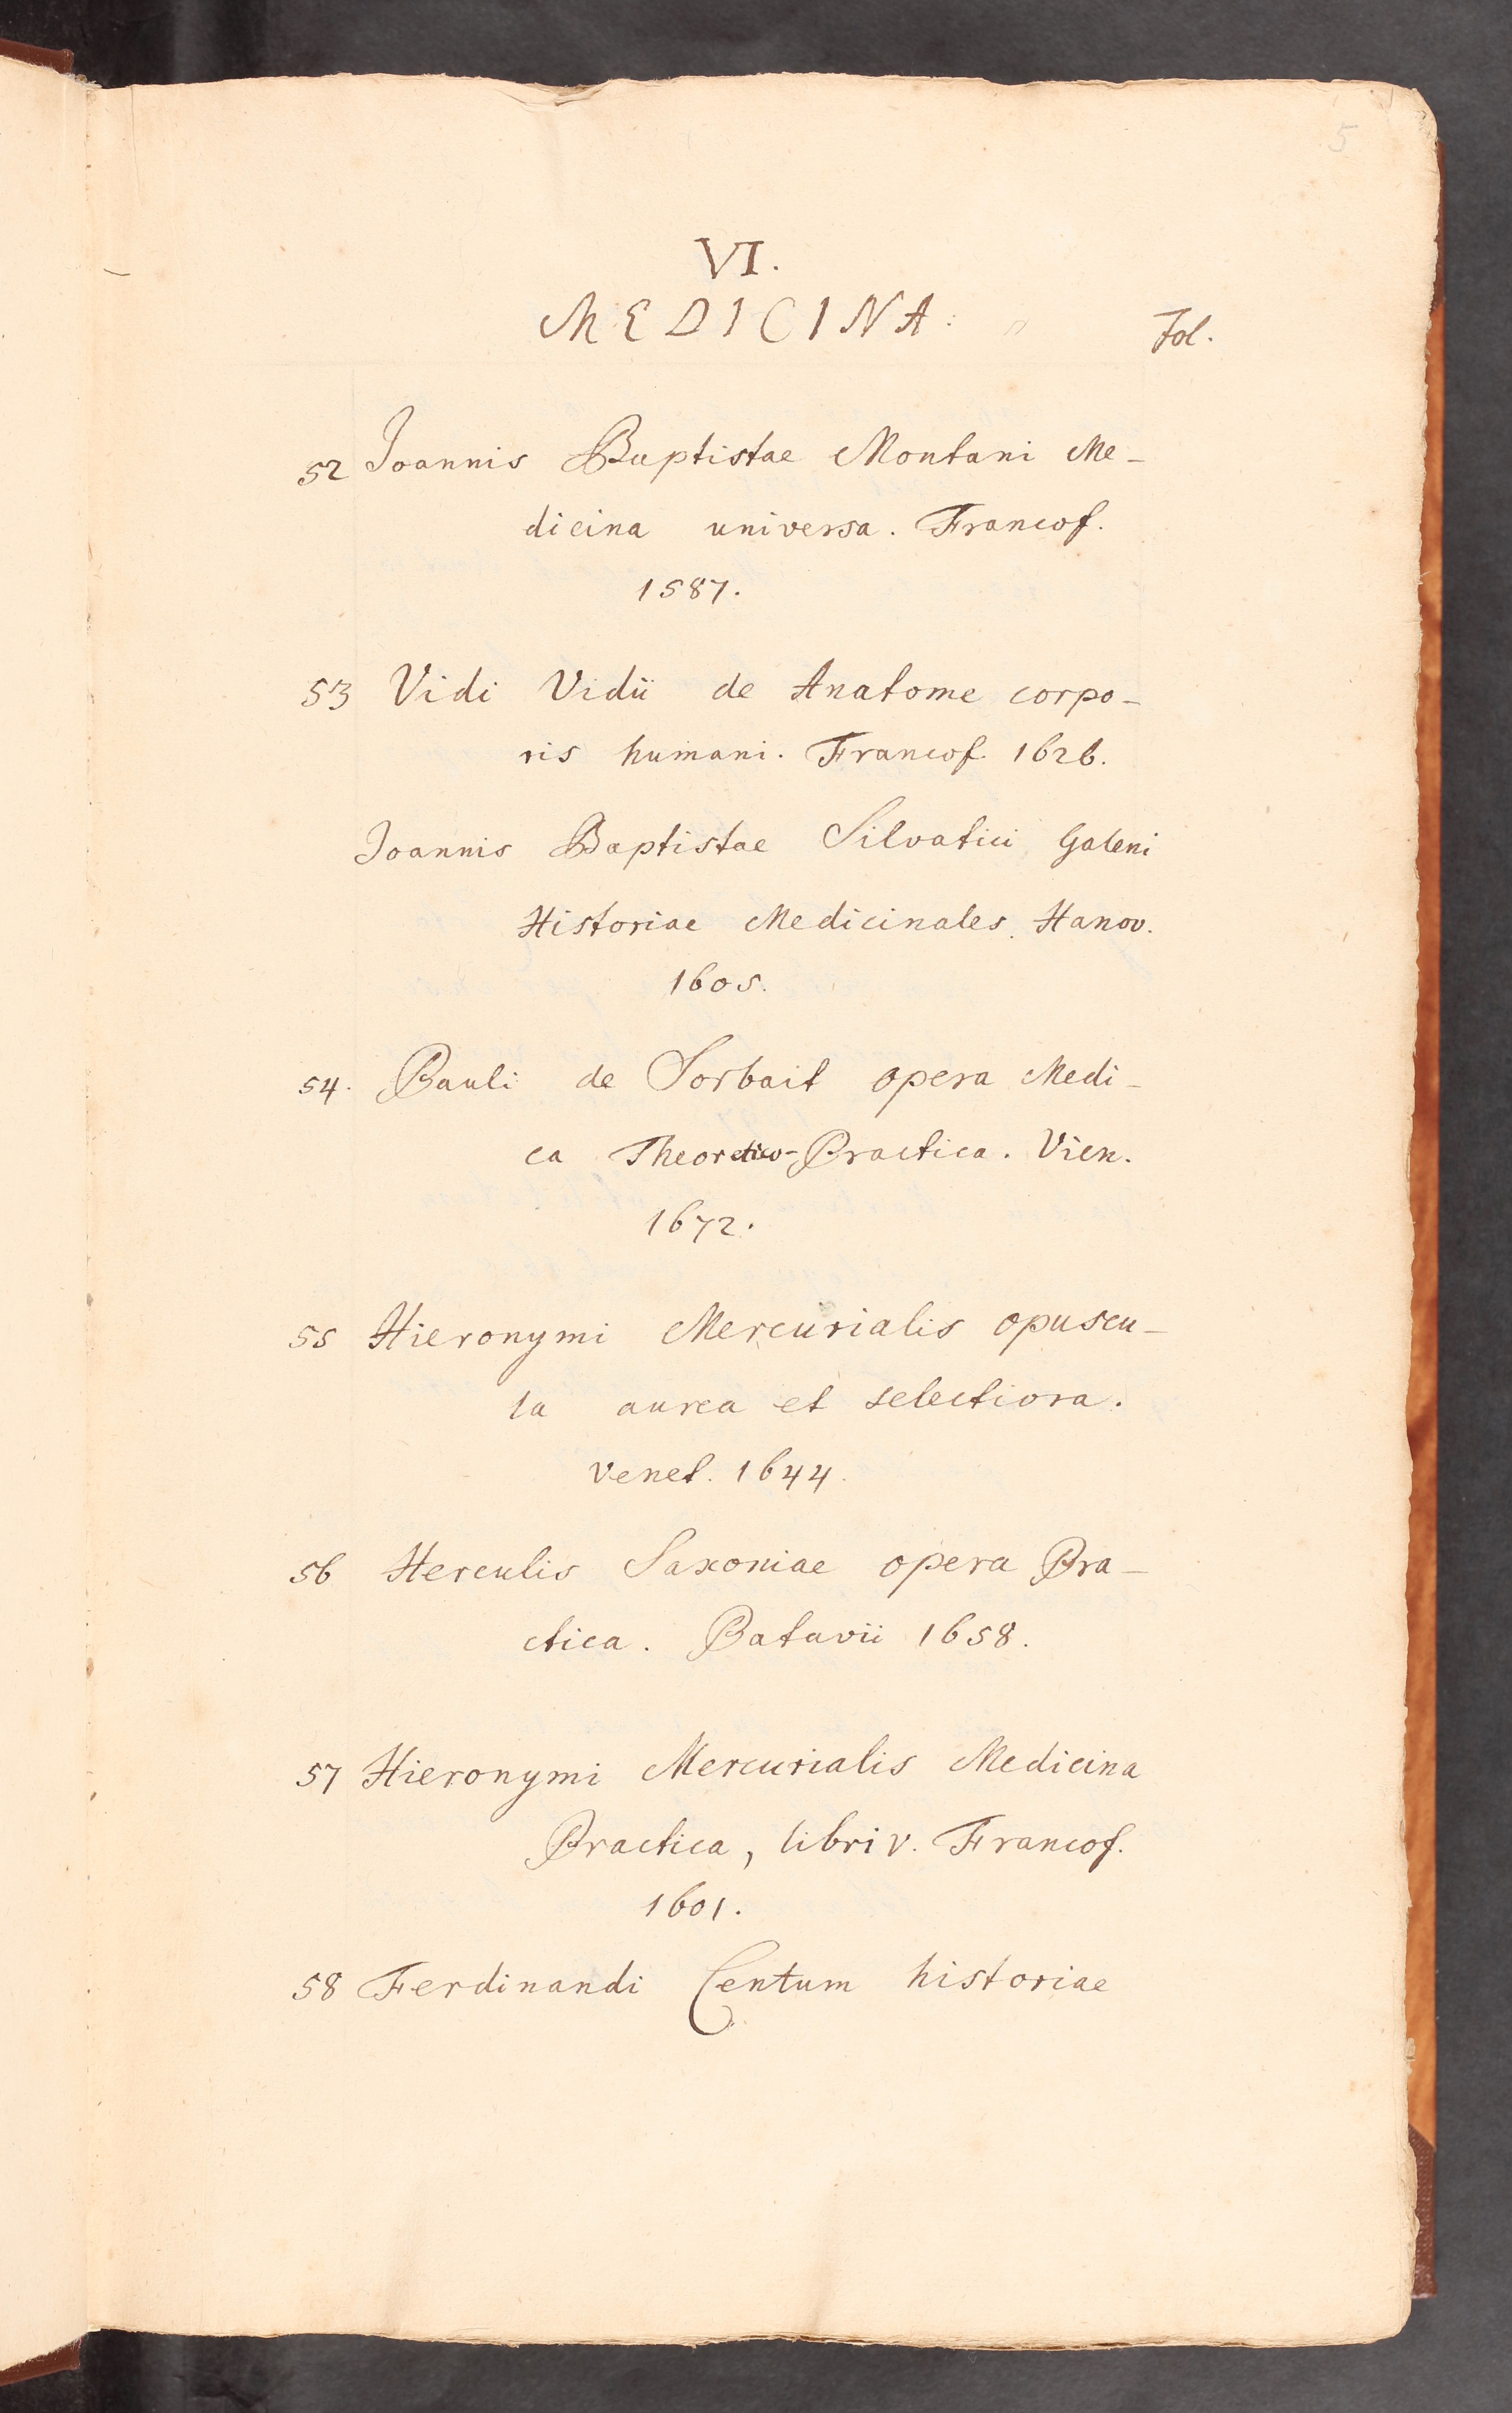 5
VI.
MEDICINA. Fol.
52 Joannis Baptistae Montani Me-
dicina universa. Francof.
1587.
53 Vidi Vidii de Anatome corpo-
ris humani. Francof. 1626.
Joannis Baptistae Silvatici Galeni
Historiae Medicinales. Hanov.
1605.
54. Pauli de Sorbait opera Medi-
ca Theoretico-Practica. Vien.
1672.
55 Hieronymi Mercurialis opuscu-
la aurea et selectiora.
Venet. 1644.
56 Herculis Saxoniae opera Pra-
ctica. Patavii 1658.
57 Hieronymi Mercurialis Medicina
Practica, libri v. Francof.
1601.
58 Ferdinandi Centum historiae